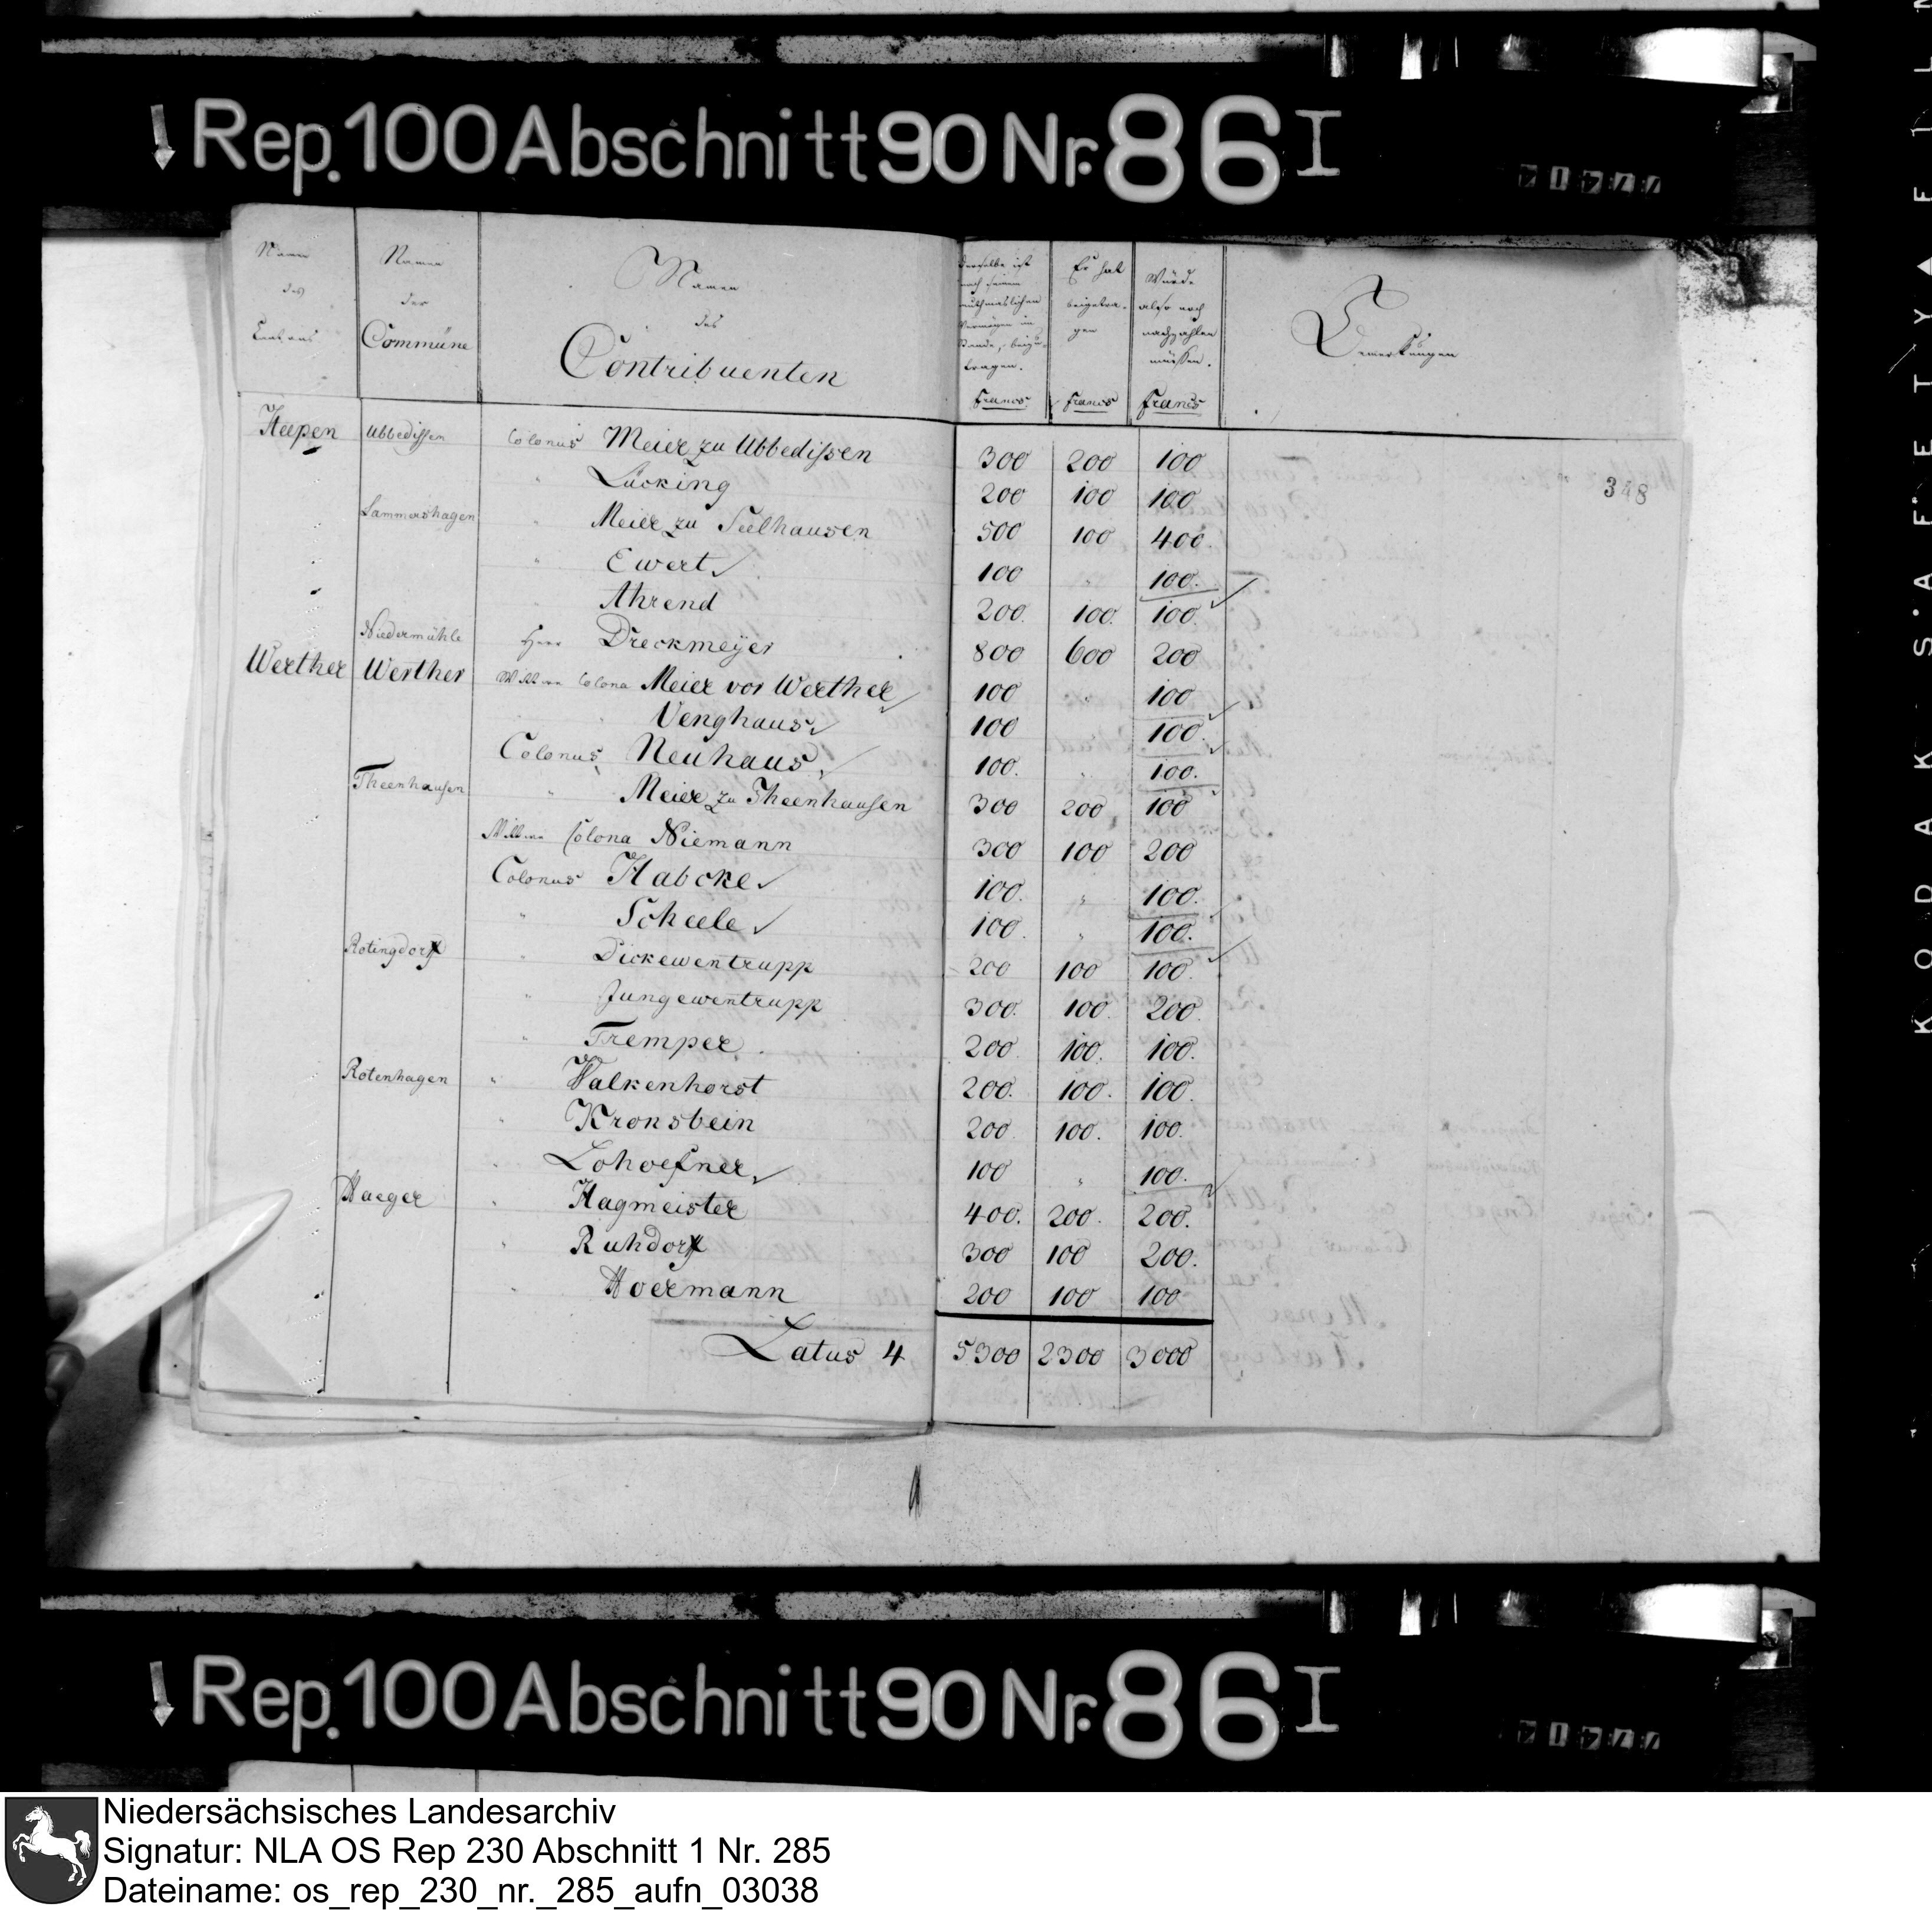 Rep. 100 Abschnitt 90 Nr. 86 I
Namen des Cantons
Namen der Commüne
Namen des Contribuenten
derselbe ist nach seinem muthmaslichen Vermögen im Stande, beizutragen. Francs
Er hat beigetragen Francs
Würde also noch nachzahlen müssen. Francs
Bemerkungen
348
Heepen Ubbedissen Colonus Meier zu Ubbedissen 300 200 100
" Lücking 200 100 100
Lammershagen " Meier zu Selhausen 500 100 400.
" Ewert 100 " 100.
" Ahrend 200. 100. 100.
Niedermühle Herr Dreckmeÿer 800 600 200
Werther Werther Wittwe Colona Meier vor Werther 100 " 100
" " Venghaus 100 100.
Colonus Neuhaus 100. " 100.
Theenhausen " Meier zu Theenhausen 300 200 100
Wittwe Colona Niemann 300 100 200
Colonus Habcke 100. " 100.
" Scheele 100. " 100.
Rotingdorf " Dickewentrupp 200 100 100.
" Jungewentrupp 300. 100. 200.
" Tremper 200. 100. 100.
Rotenhagen " Walkenhorst 200. 100. 100.
" Kronsbein 200. 100. 100.
" Lohoefner 100 " 100.
Haeger " Hagmeister 400. 200. 200.
" Ruhdorf 300 100 200.
" Hoermann 200 100 100
Latus 4 5300 2300 3000
Rep. 100 Abschnitt 90 Nr. 86 I
KODAK SAFETY FIL
Niedersächsisches Landesarchiv
Signatur: NLA OS Rep 230 Abschnitt 1 Nr. 285
Dateiname: os_rep_230_nr._285_aufn_03038